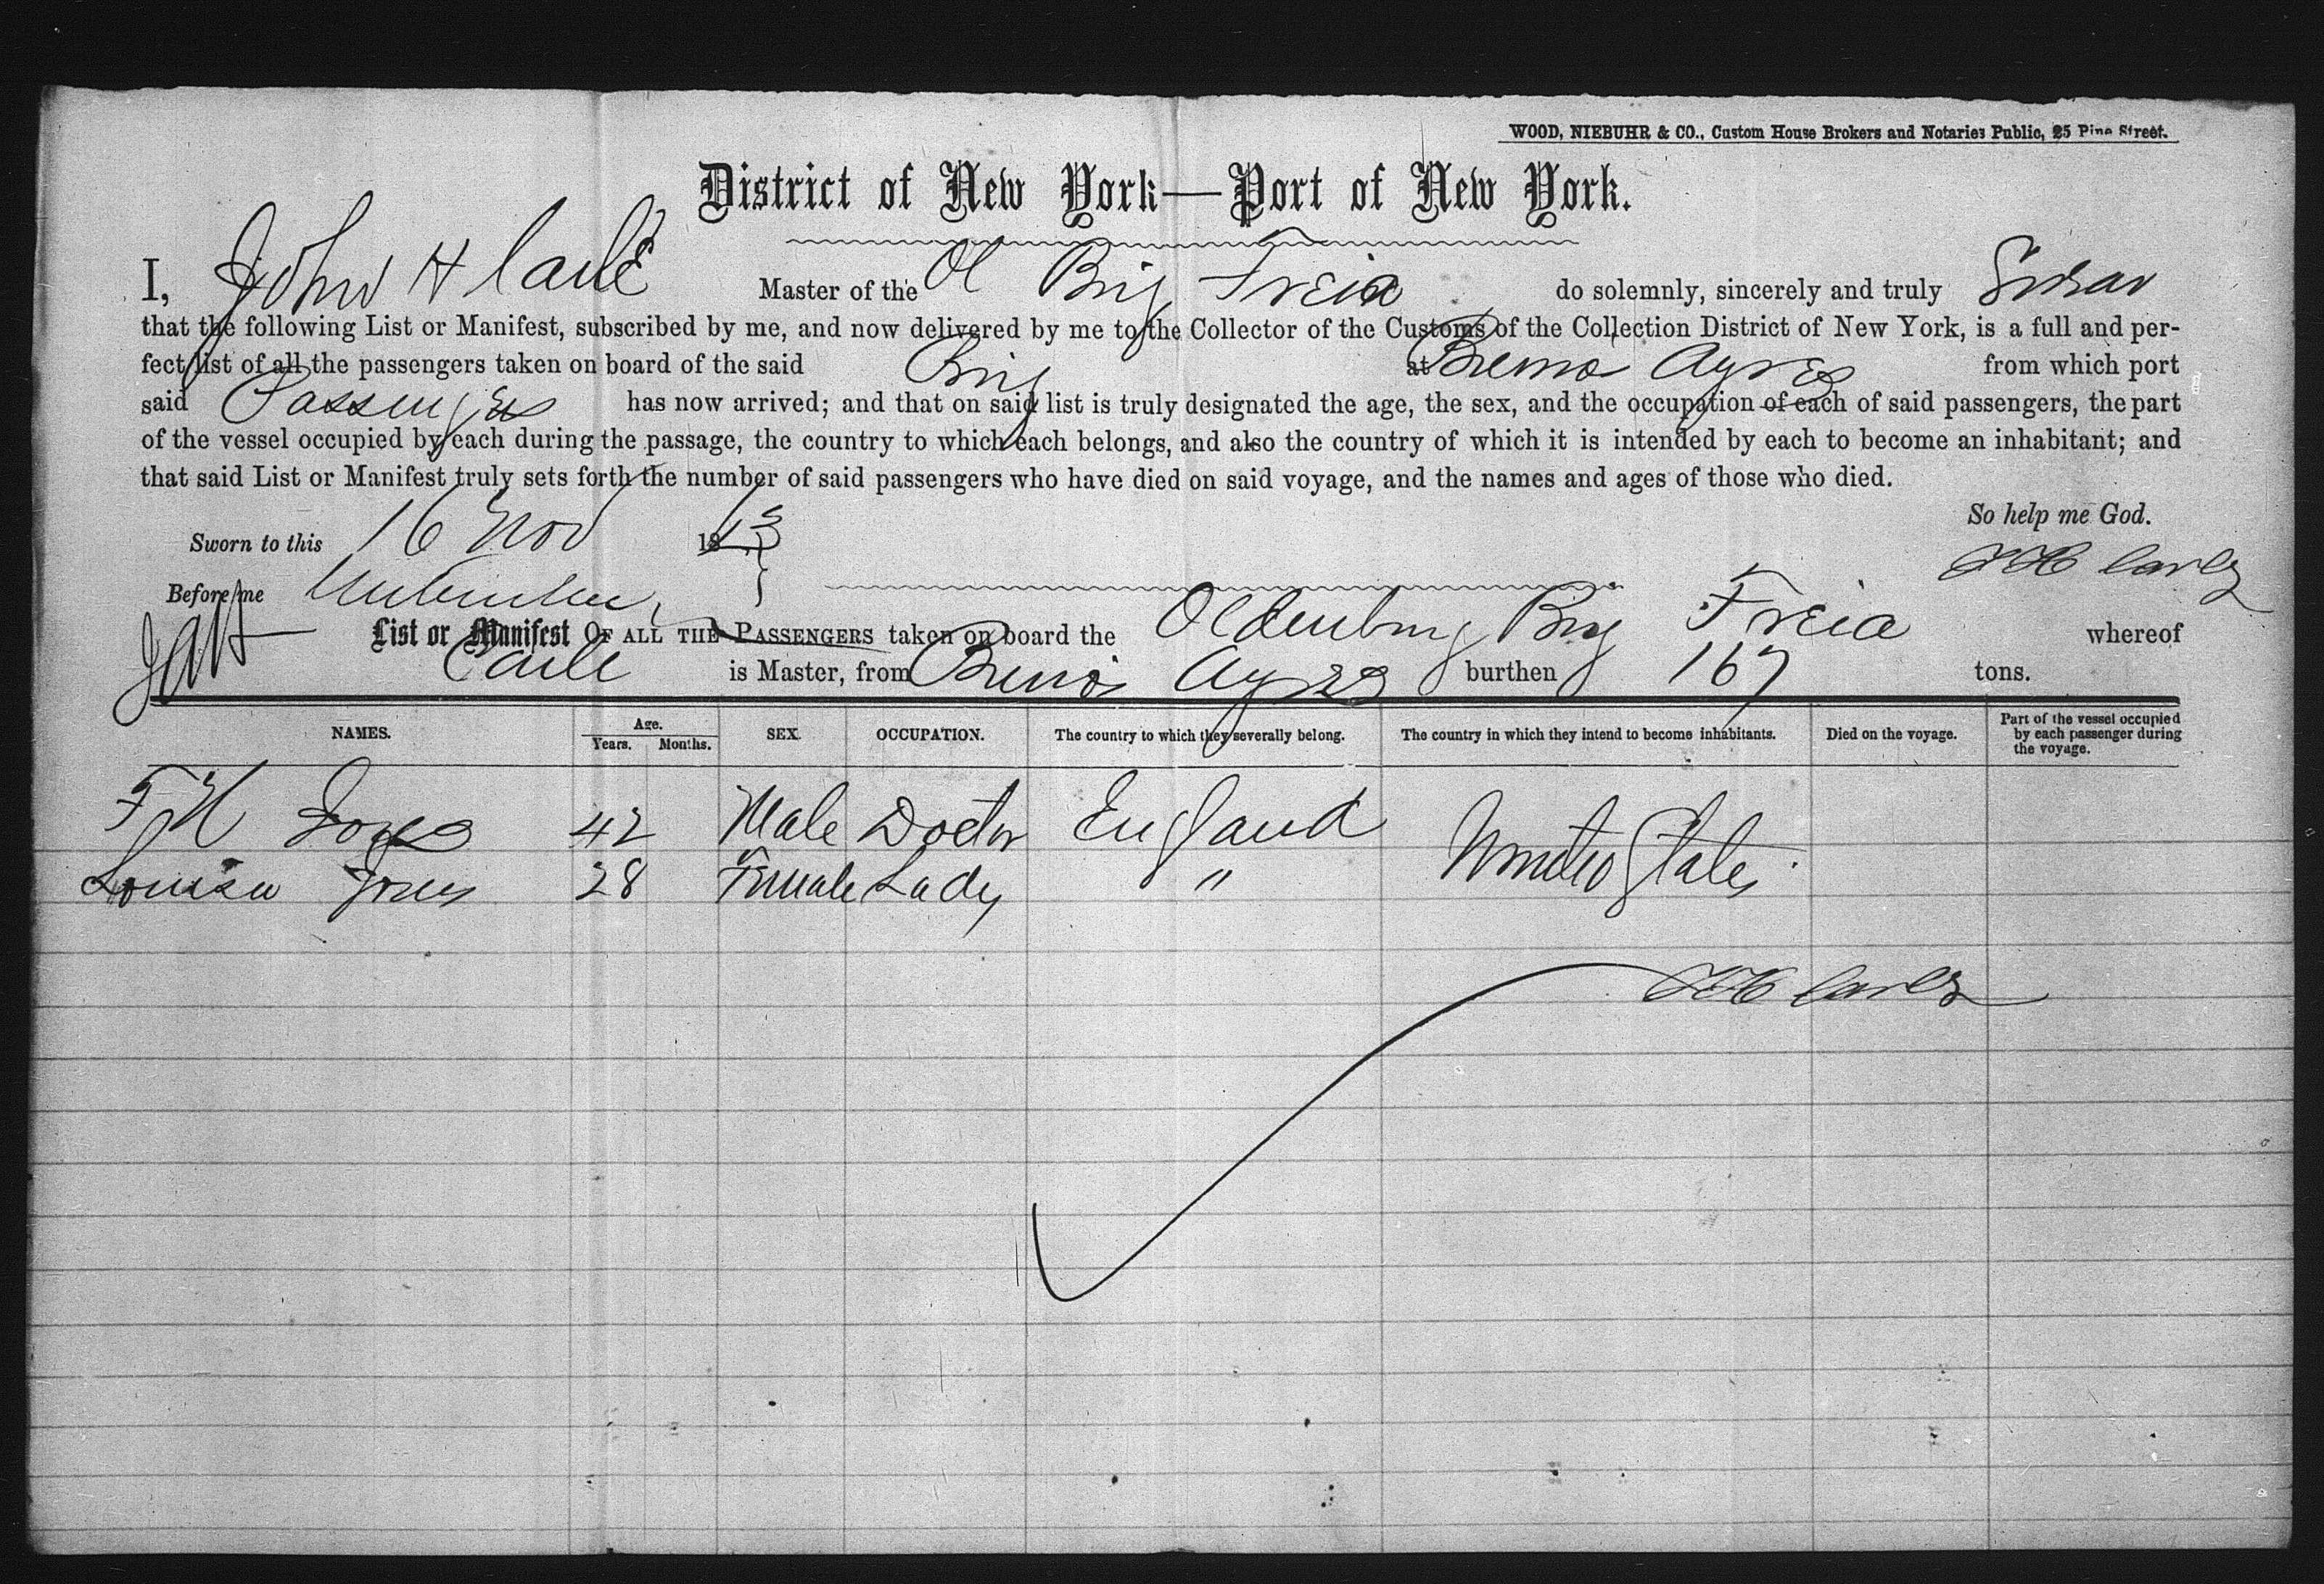 WOOD, NIEBUHR & CO., Custom House Brokers and Notaries Public, 25 Pine Street.
District of New York—Port of New York.
I, John H Carls Master of the Ol Brig Freia do solemnly, sincerely and truly Swear
that the following List or Manifest, subscribed by me, and now delivered by me to the Collector of the Customs of the Collection District of New York, is a full and per-
fect list of all the passengers taken on board of the said Brig at Buenos Ayres from which port
said Passengers has now arrived; and that on said list is truly designated the age, the sex, and the occupation of each of said passengers, the part
of the vessel occupied by each during the passage, the country to which each belongs, and also the country of which it is intended by each to become an inhabitant; and
that said List or Manifest truly sets forth the number of said passengers who have died on said voyage, and the names and ages of those who died.
So help me God.
Sworn to this 16 Nov 18
Before me
List or Manifest OF ALL THE PASSENGERS taken on board the Oldenburg Brig Freia whereof
is Master, from Buenos Ayres burthen 167 tons.
NAMES. Age. Years. Months. SEX. OCCUPATION. The country to which they severally belong. The country in which they intend to become inhabitants. Died on the voyage. Part of the vessel occupied by each passenger during the voyage.
F H Jones 42 Male Doctor England United States
Louisa Jones 28 Female Lady "